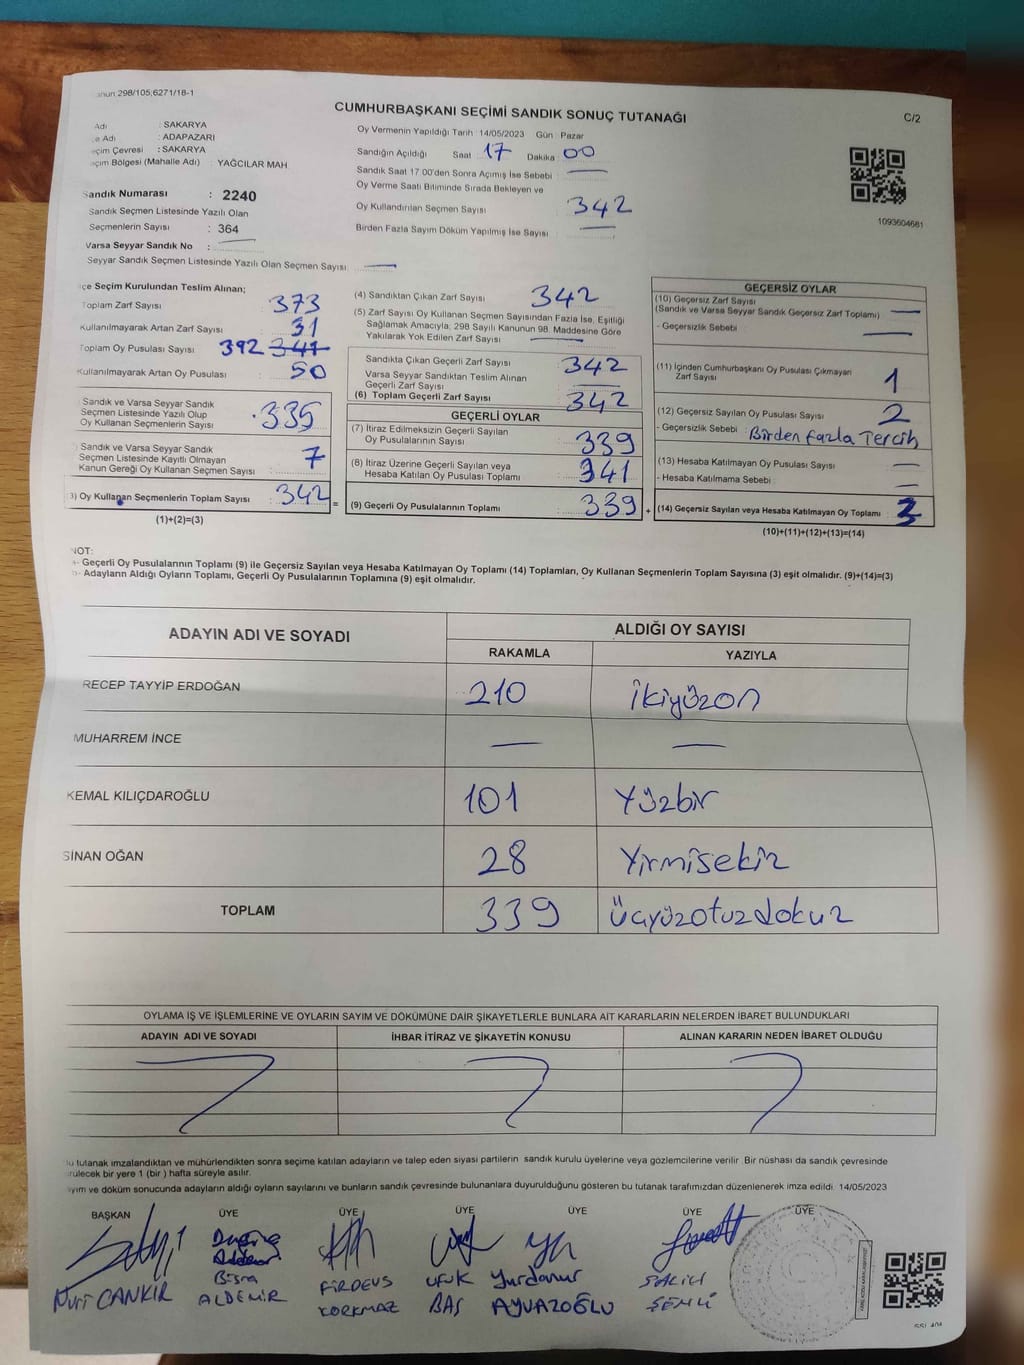 298/105;6271/18-1
CUMHURBAŞKANI SEÇİMİ SANDIK SONUÇ TUTANAĞI
C/2
Adı : SAKARYA
Adı : ADAPAZARI
Çevresi : SAKARYA
Bölgesi (Mahalle Adı) : YAĞCILAR MAH
Sandık Numarası : 2240
Sandık Seçmen Listesinde Yazılı Olan
Seçmenlerin Sayısı : 364
Varsa Seyyar Sandık No : —
Seyyar Sandık Seçmen Listesinde Yazılı Olan Seçmen Sayısı : —
Oy Vermenin Yapıldığı Tarih : 14/05/2023 Gün : Pazar
Sandığın Açıldığı Saat 17 Dakika 00
Sandık Saat 17 00'den Sonra Açımış İse Sebebi : —
Oy Verme Saati Bitiminde Sırada Bekleyen ve
Oy Kullandırılan Seçmen Sayısı : 342
Birden Fazla Sayım Döküm Yapılmış İse Sayısı : —
1093604681
İlçe Seçim Kurulundan Teslim Alınan;
Toplam Zarf Sayısı : 373
Kullanılmayarak Artan Zarf Sayısı : 31
Toplam Oy Pusulası Sayısı : 392 341
Kullanılmayarak Artan Oy Pusulası : 50
Sandık ve Varsa Seyyar Sandık
Seçmen Listesinde Yazılı Olup
Oy Kullanan Seçmenlerin Sayısı : 335
Sandık ve Varsa Seyyar Sandık
Seçmen Listesinde Kayıtlı Olmayan
Kanun Gereği Oy Kullanan Seçmen Sayısı : 7
3) Oy Kullanan Seçmenlerin Toplam Sayısı : 342 =
(1)+(2)=(3)
(4) Sandıktan Çıkan Zarf Sayısı : 342
(5) Zarf Sayısı Oy Kullanan Seçmen Sayısından Fazla İse, Eşitliği
Sağlamak Amacıyla, 298 Sayılı Kanunun 98. Maddesine Göre
Yakılarak Yok Edilen Zarf Sayısı : —
Sandıkta Çıkan Geçerli Zarf Sayısı : 342
Varsa Seyyar Sandıktan Teslim Alınan
Geçerli Zarf Sayısı : —
(6) Toplam Geçerli Zarf Sayısı : 342
GEÇERLİ OYLAR
(7) İtiraz Edilmeksizin Geçerli Sayılan
Oy Pusulalarının Sayısı : 339
(8) İtiraz Üzerine Geçerli Sayılan veya
Hesaba Katılan Oy Pusulası Toplamı : 341
(9) Geçerli Oy Pusulalarının Toplamı : 339 +
GEÇERSİZ OYLAR
(10) Geçersiz Zarf Sayısı
(Sandık ve Varsa Seyyar Sandık Geçersiz Zarf Toplamı) : —
- Geçersizlik Sebebi : —
(11) İçinden Cumhurbaşkanı Oy Pusulası Çıkmayan
Zarf Sayısı : 1
(12) Geçersiz Sayılan Oy Pusulası Sayısı : 2
- Geçersizlik Sebebi : Birden fazla Tercih
(13) Hesaba Katılmayan Oy Pusulası Sayısı : —
- Hesaba Katılmama Sebebi : —
(14) Geçersiz Sayılan veya Hesaba Katılmayan Oy Toplamı : 3
(10)+(11)+(12)+(13)=(14)
NOT:
a- Geçerli Oy Pusulalarının Toplamı (9) ile Geçersiz Sayılan veya Hesaba Katılmayan Oy Toplamı (14) Toplamları, Oy Kullanan Seçmenlerin Toplam Sayısına (3) eşit olmalıdır. (9)+(14)=(3)
b- Adayların Aldığı Oyların Toplamı, Geçerli Oy Pusulalarının Toplamına (9) eşit olmalıdır.
ADAYIN ADI VE SOYADI
ALDIĞI OY SAYISI
RAKAMLA YAZIYLA
RECEP TAYYİP ERDOĞAN 210 ikiyüzon
MUHARREM İNCE — —
KEMAL KILIÇDAROĞLU 101 Yüzbir
SİNAN OĞAN 28 Yirmisekiz
TOPLAM 339 üçyüzotuzdokuz
OYLAMA İŞ VE İŞLEMLERİNE VE OYLARIN SAYIM VE DÖKÜMÜNE DAİR ŞİKAYETLERLE BUNLARA AİT KARARLARIN NELERDEN İBARET BULUNDUKLARI
ADAYIN ADI VE SOYADI İHBAR İTİRAZ VE ŞİKAYETİN KONUSU ALINAN KARARIN NEDEN İBARET OLDUĞU
Bu tutanak imzalandıktan ve mühürlendikten sonra seçime katılan adayların ve talep eden siyasi partilerin sandık kurulu üyelerine veya gözlemcilerine verilir. Bir nüshası da sandık çevresinde
görülecek bir yere 1 (bir) hafta süreyle asılır.
Sayım ve döküm sonucunda adayların aldığı oyların sayılarını ve bunların sandık çevresinde bulunanlara duyurulduğunu gösteren bu tutanak tarafımızdan düzenlenerek imza edildi. 14/05/2023
BAŞKAN ÜYE ÜYE ÜYE ÜYE ÜYE ÜYE
Nuri ÇANKIR
Büşra ALDEMİR
FİRDEVS KORKMAZ
UFUK BAŞ
Yurdanur AYVAZOĞLU
SALİH ŞENLİ